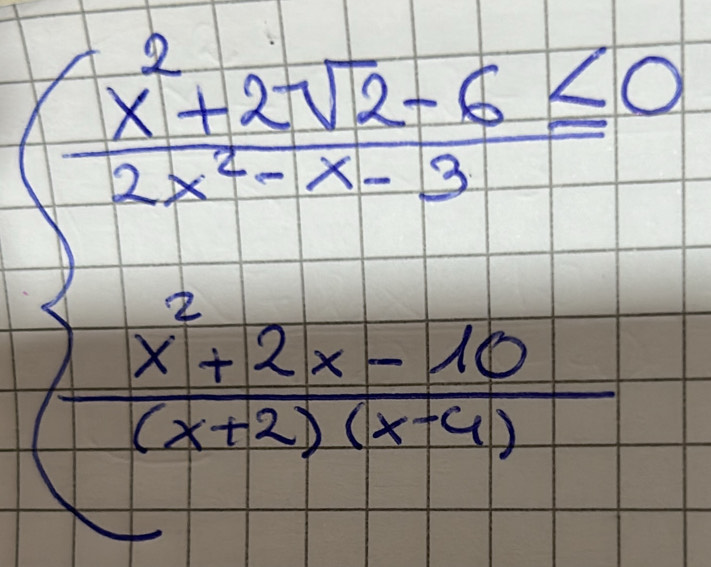 x² + 2√2 - 6 ≤ 0
2x² - x - 3
x² + 2x - 10
(x+2) (x-4)